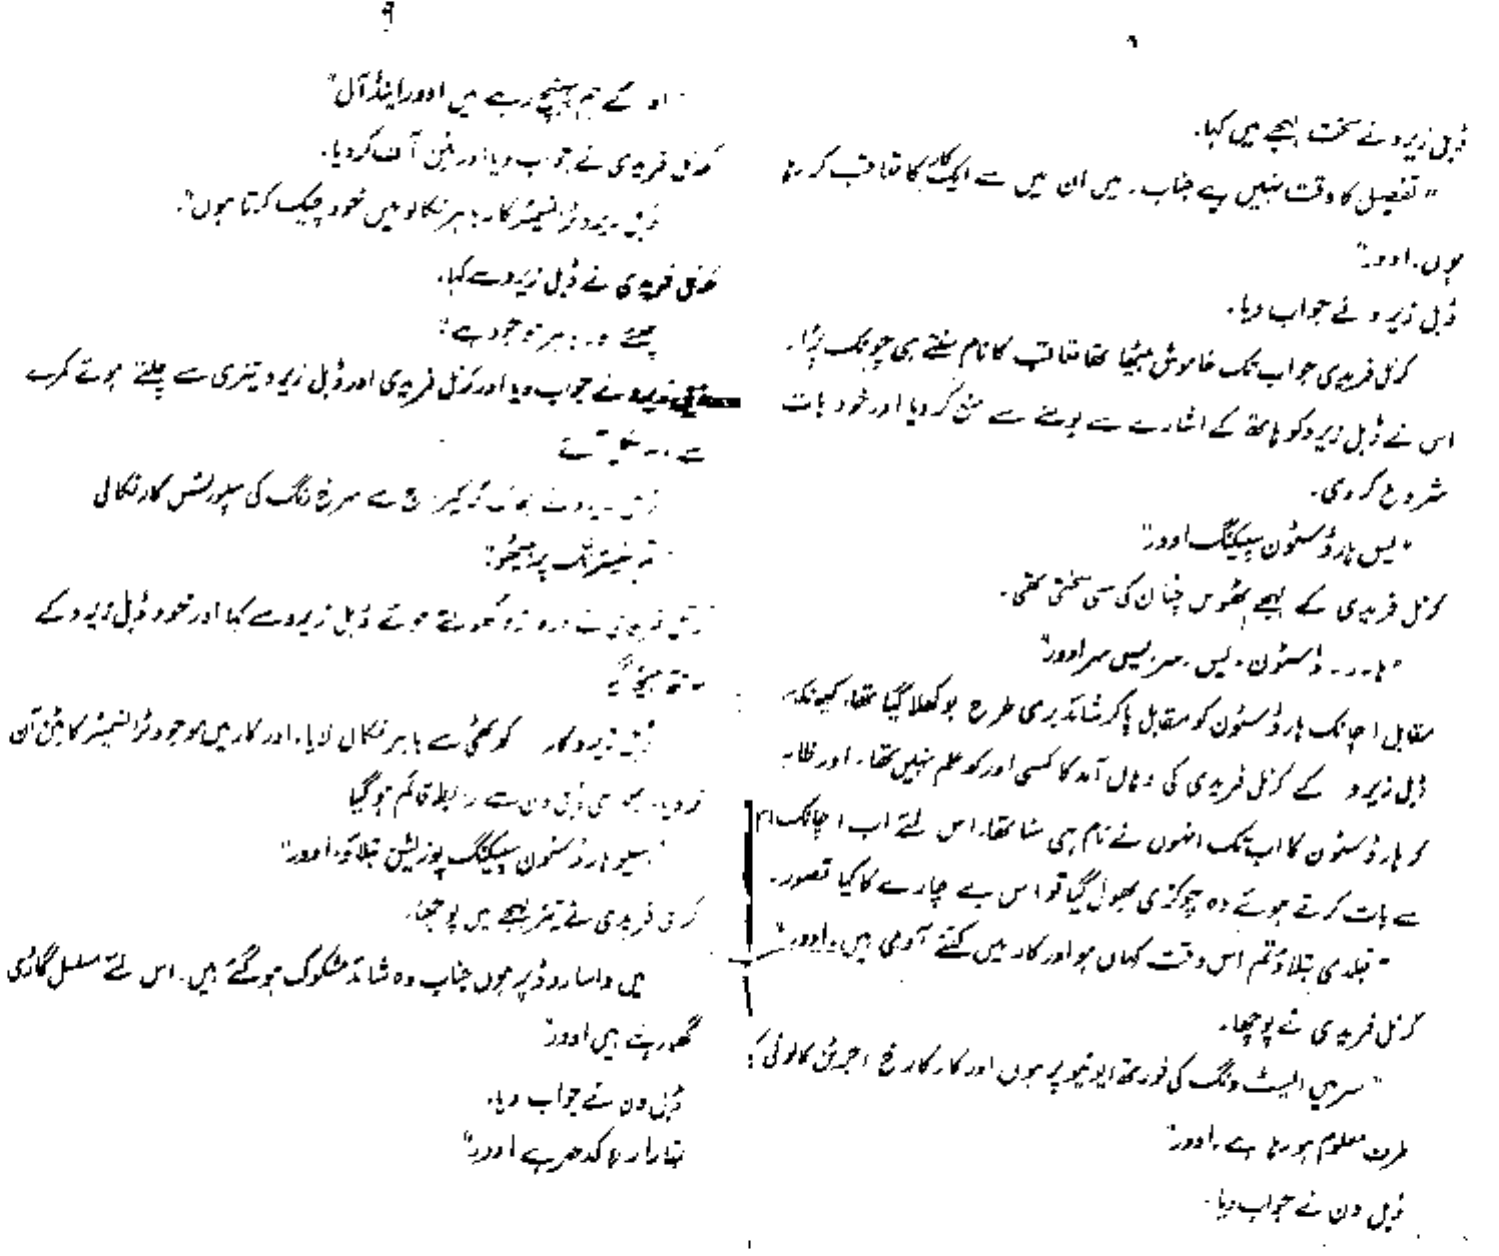 ۸
ڈبل زیرو نے سخت لہجے میں کہا۔
"تفصیل کا وقت نہیں ہے جناب۔ میں ان میں سے ایک کا تعاقب کر رہا
ہوں۔ اوور"
ڈبل زیرو نے جواب دیا۔
کرنل فریدی جو اب تک خاموش بیٹھا تھا تعاقب کا نام سنتے ہی چونک پڑا۔
اس نے ڈبل زیرو کو ہاتھ کے اشارے سے بولنے سے منع کر دیا اور خود بات
شروع کر دی۔
"یس ہارڈ سٹون سپیکنگ اوور"
کرنل فریدی کے لہجے ٹھوس چٹان کی سی سختی تھی۔
"ہارر۔ ڈسٹون۔ یس۔ سر۔ یس سر اوور"
مقابل اچانک ہارڈ سٹون کو مقابل پا کر شائد بری طرح بوکھلا گیا تھا۔ کیونکہ
ڈبل زیرو کے کرنل فریدی کی وہاں آمد کا کسی اور کو علم نہیں تھا۔ اور ظاہر
کو ہارڈ سٹون کا اب تک انہوں نے نام ہی سنا تھا۔ اس لئے اب اچانک اس
سے بات کرتے ہوئے وہ چوکڑی بھول گیا تو اس بے چارے کا کیا قصور۔
"جلدی بتلاؤ تم اس وقت کہاں ہو اور کار میں کتنے آدمی ہیں۔ اوور"
کرنل فریدی نے پوچھا۔
"سر میں ایسٹ ونگ کی فورتھ ایونیو پر ہوں اور کار کا رخ کالونی کی
طرف معلوم ہو رہا ہے۔ اوور"
ڈبل ون نے جواب دیا۔
۹
او کے ہم پہنچ رہے ہیں اوور اینڈ آل"
کرنل فریدی نے جواب دیا اور بٹن آف کر دیا۔
ڈبل زیرو ٹرانسمیٹر کار باہر نکالو میں خود چیک کرتا ہوں"
کرنل فریدی نے ڈبل زیرو سے کہا۔
باہر موجود ہے"
ڈبل زیرو نے جواب دیا اور کرنل فریدی اور ڈبل زیرو تیزی سے چلتے ہوئے کمرے
سے
ڈبل زیرو نے گیرج سے سرخ رنگ کی سپورٹس کار نکالی
تم سٹیرنگ پر بیٹھو"
کرنل فریدی نے دروازہ کھولتے ہوئے ڈبل زیرو سے کہا اور خود ڈبل زیرو کے
ساتھ بیٹھ گیا
ڈبل زیرو کار کو کوٹھی سے باہر نکال لایا۔ اور کار میں موجود ٹرانسمیٹر کا بٹن آن
کر دیا۔ ڈبل ون سے رابطہ قائم ہو گیا
ہیلو ہارڈ سٹون سپیکنگ پوزیشن بتلاؤ۔ اوور"
کرنل فریدی نے تیز لہجے میں پوچھا۔
میں واسا روڈ پر ہوں جناب وہ شائد مشکوک ہو گئے ہیں۔ اس لئے مسلسل گاڑی
گھما رہے ہیں اوور"
ڈبل ون نے جواب دیا۔
تمہارا رخ کدھر ہے اوور"